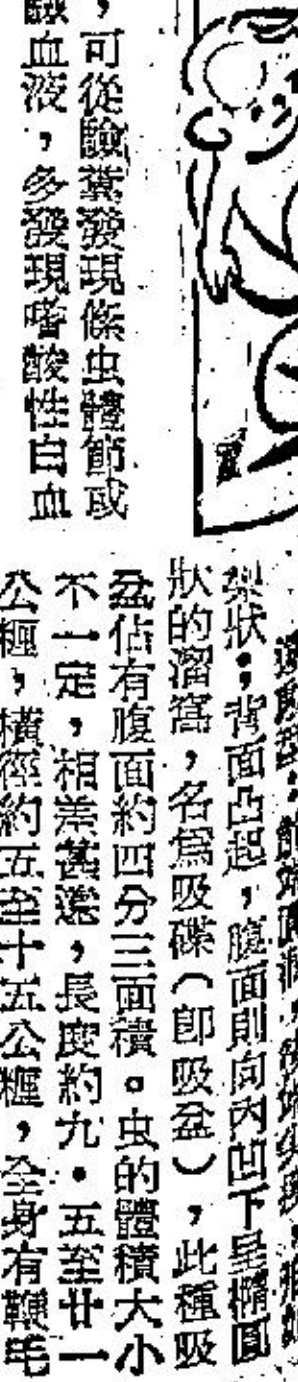 ，可從驗糞發現條虫體節或
驗血液，多發現嗜酸性白血
梨狀；背面凸起，腹面則向內凹下呈橢圓
狀的溜窩，名爲吸碟（卽吸盆），此種吸
盆佔有腹面約四分三面積。虫的體積大小
不一定，相差甚遠，長度約九·五至廿一
公糎，橫徑約五至十五公糎，全身有鞭毛